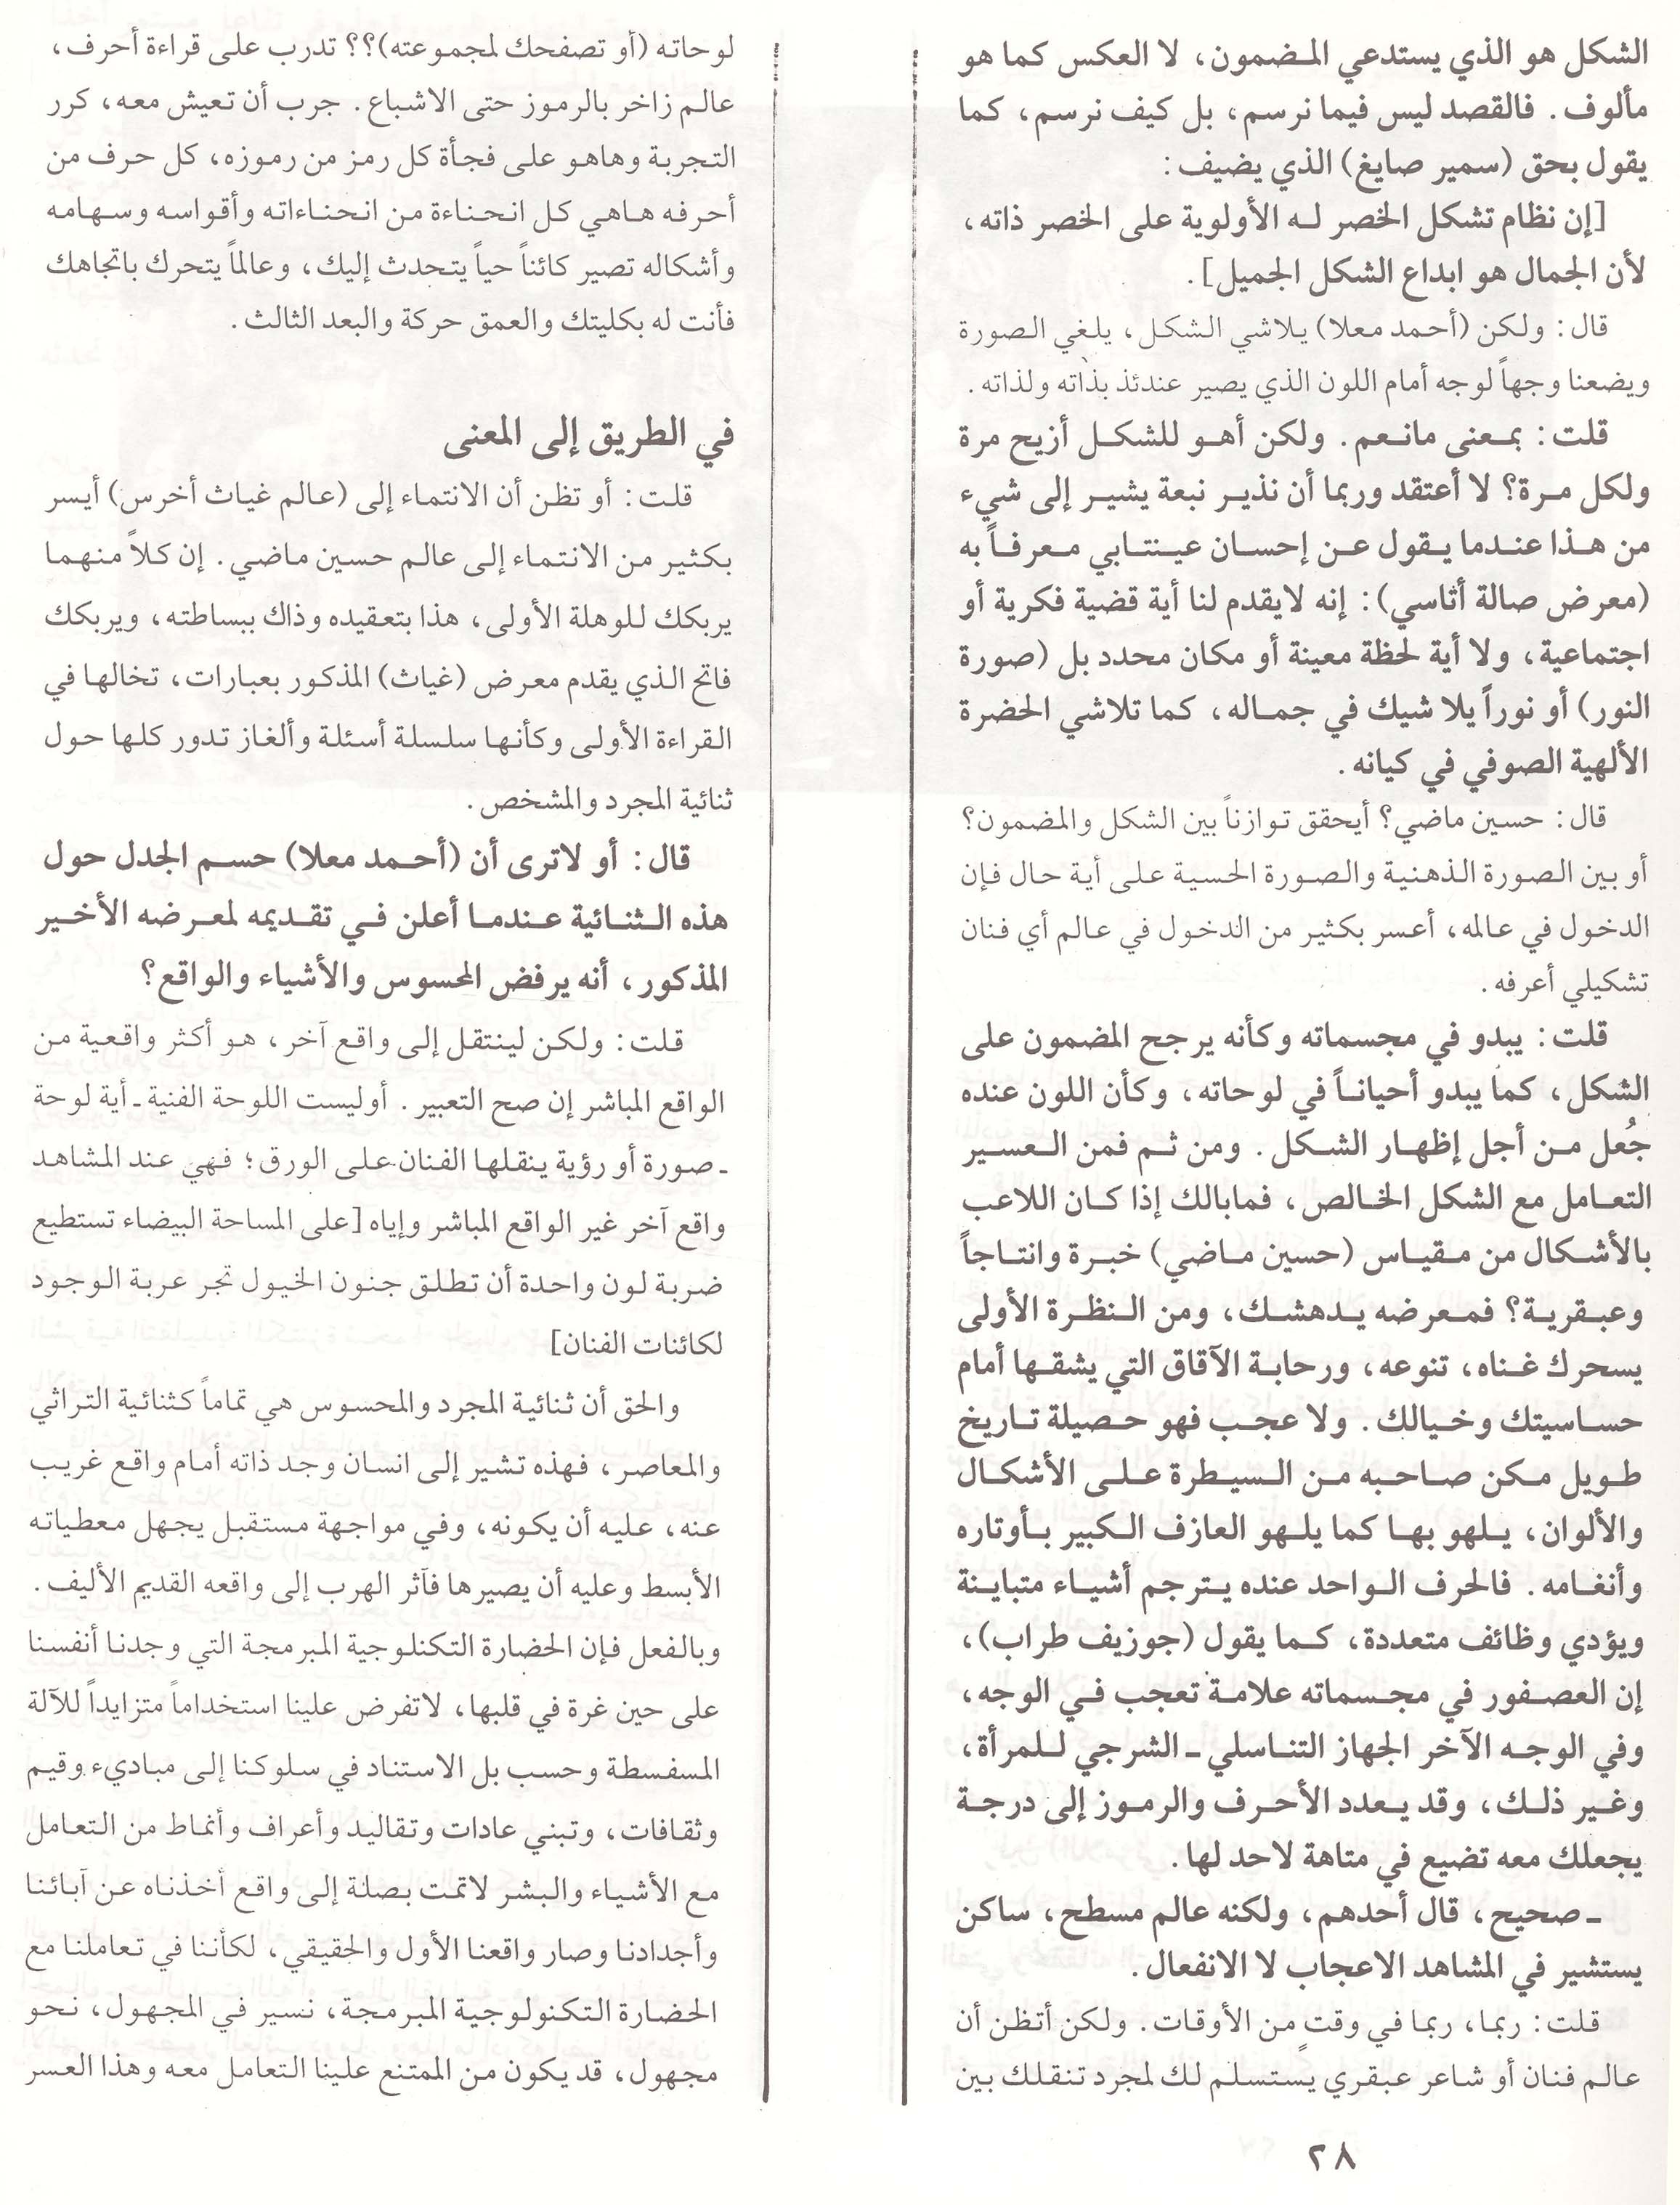 الشكل هو الذي يستدعي المضمون، لا العكس كما هو
مألوف. فالقصد ليس فيما نرسم، بل كيف نرسم، كما
يقول بحق (سمير صايغ) الذي يضيف:
[إن نظام تشكل الخصر له الأولوية على الخصر ذاته،
لأن الجمال هو ابداع الشكل الجميل].
قال: ولكن (أحمد معلا) يلاشي الشكل، يلغي الصورة
ويضعنا وجهاً لوجه أمام اللون الذي يصير عندئذ بذاته ولذاته.
قلت: بمعنى مانعم. ولكن أهو للشكل أزيح مرة
ولكل مرة؟ لا أعتقد وربما أن نذير نبعة يشير إلى شيء
من هذا عندما يقول عن إحسان عينتابي معرفاً به
(معرض صالة أتاسي): إنه لايقدم لنا أية قضية فكرية أو
اجتماعية، ولا أية لحظة معينة أو مكان محدد بل (صورة
النور) أو نوراً يلا شيك في جماله، كما تلاشي الحضرة
الألهية الصوفي في كيانه.
قال: حسين ماضي؟ أيحقق توازناً بين الشكل والمضمون؟
أو بين الصورة الذهنية والصورة الحسية على أية حال فإن
الدخول في عالمه، أعسر بكثير من الدخول في عالم أي فنان
تشكيلي أعرفه.
قلت: يبدو في مجسماته وكأنه يرجح المضمون على
الشكل، كما يبدو أحياناً في لوحاته، وكأن اللون عنده
جُعل من أجل إظهار الشكل. ومن ثم فمن العسير
التعامل مع الشكل الخالص، فمابالك إذا كان اللاعب
بالأشكال من مقياس (حسين ماضي) خبرة وانتاجاً
وعبقرية؟ فمعرضه يدهشك، ومن النظرة الأولى
يسحرك غناه، تنوعه، ورحابة الآقاق التي يشقها أمام
حساسيتك وخيالك. ولا عجب فهو حصيلة تاريخ
طويل مكن صاحبه من السيطرة على الأشكال
والألوان، يلهو بها كما يلهو العازف الكبير بأوتاره
وأنغامه. فالحرف الواحد عنده يترجم أشياء متباينة
ويؤدي وظائف متعددة، كما يقول (جوزيف طراب)،
إن العصفور في مجسماته علامة تعجب في الوجه،
وفي الوجه الآخر الجهاز التناسلي ـ الشرجي للمرأة،
وغير ذلك، وقد يعدد الأحرف والرموز إلى درجة
يجعلك معه تضيع في متاهة لاحد لها.
ـ صحيح، قال أحدهم، ولكنه عالم مسطح، ساكن
يستشير في المشاهد الاعجاب لا الانفعال.
قلت: ربما، ربما في وقتٍ من الأوقات. ولكن أتظن أن
عالم فنان أو شاعر عبقري يستسلم لك لمجرد تنقلك بين
لوحاته (أو تصفحك لمجموعته)؟؟ تدرب على قراءة أحرف،
عالم زاخر بالرموز حتى الاشباع. جرب أن تعيش معه، كرر
التجربة وهاهو على فجأة كل رمز من رموزه، كل حرف من
أحرفه هاهي كل انحناءة من انحناءاته وأقواسه وسهامه
وأشكاله تصير كائناً حياً يتحدث إليك، وعالماً يتحرك باتجاهك
فأنت له بكليتك والعمق حركة والبعد الثالث.
في الطريق إلى المعنى
قلت: أو تظن أن الانتماء إلى (عالم غياث أخرس) أيسر
بكثير من الانتماء إلى عالم حسين ماضي. إن كلاً منهما
يربكك للوهلة الأولى، هذا بتعقيده وذاك ببساطته، ويربكك
فاتح الذي يقدم معرض (غياث) المذكور بعبارات، تخالها في
القراءة الأولى وكأنها سلسلة أسئلة وألغاز تدور كلها حول
ثنائية المجرد والمشخص.
قال: أو لاترى أن (أحمد معلا) حسم الجدل حول
هذه الثنائية عندما أعلن في تقديمه لمعرضه الأخير
المذكور، أنه يرفض المحسوس والأشياء والواقع؟
قلت: ولكن لينتقل إلى واقع آخر، هو أكثر واقعية من
الواقع المباشر إن صح التعبير. أوليست اللوحة الفنية ـ أية لوحة
ـ صورة أو رؤية ينقلها الفنان على الورق؛ فهي عند المشاهد
واقع آخر غير الواقع المباشر وإياه [على المساحة البيضاء تستطيع
ضربة لون واحدة أن تطلق جنون الخيول تجر عربة الوجود
لكائنات الفنان]
والحق أن ثنائية المجرد والمحسوس هي تماماً كثنائية التراثي
والمعاصر، فهذه تشير إلى انسان وجد ذاته أمام واقع غريب
عنه، عليه أن يكونه، وفي مواجهة مستقبل يجهل معطياته
الأبسط وعليه أن يصيرها فآثر الهرب إلى واقعه القديم الأليف.
وبالفعل فإن الحضارة التكنلوجية المبرمجة التي وجدنا أنفسنا
على حين غرة في قلبها، لاتفرض علينا استخداماً متزايداً للآلة
المسفسطة وحسب بل الاستناد في سلوكنا إلى مباديء وقيم
وثقافات، وتبني عادات وتقاليد وأعراف وأنماط من التعامل
مع الأشياء والبشر لاتمت بصلة إلى واقع أخذناه عن آبائنا
وأجدادنا وصار واقعنا الأول والحقيقي، لكأننا في تعاملنا مع
الحضارة التكنولوجية المبرمجة، نسير في المجهول، نحو
مجهول، قد يكون من الممتنع علينا التعامل معه وهذا العسر
٢٨